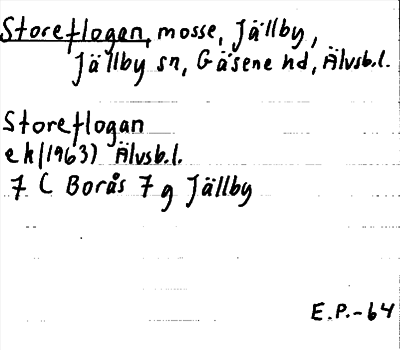 Storeflogan, mosse, Jällby,
Jällby sn, Gäsene hd, Älvsb.l.
Storeflogan
ek (1963) Älvsb.l.
7 C Borås 7 g Jällby
E.P.-64